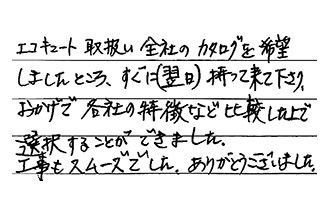 エコキュート取扱い全社のカタログを希望
しましたところ、すぐに(翌日)持って来て下さり、
おかげで各社の特徴など比較した上で
選択することができました。
工事もスムーズでした。ありがとうございました。